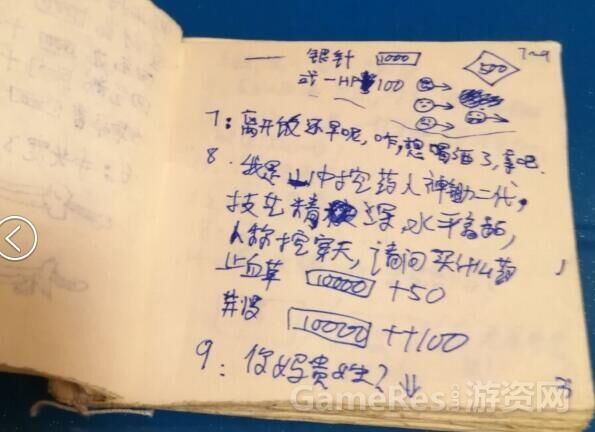 银针 1000 500 7~9
或-HP 100
7:离开饭还早呢,咋,想喝酒了,拿吧.
8.我是山中挖药人神锄二代,
技艺精 深,水平高超,
人称挖穿天,请问买什么药
止血草 10000 +50
10000 ++100
9:你妈贵姓?↓
GameRes.com游资网